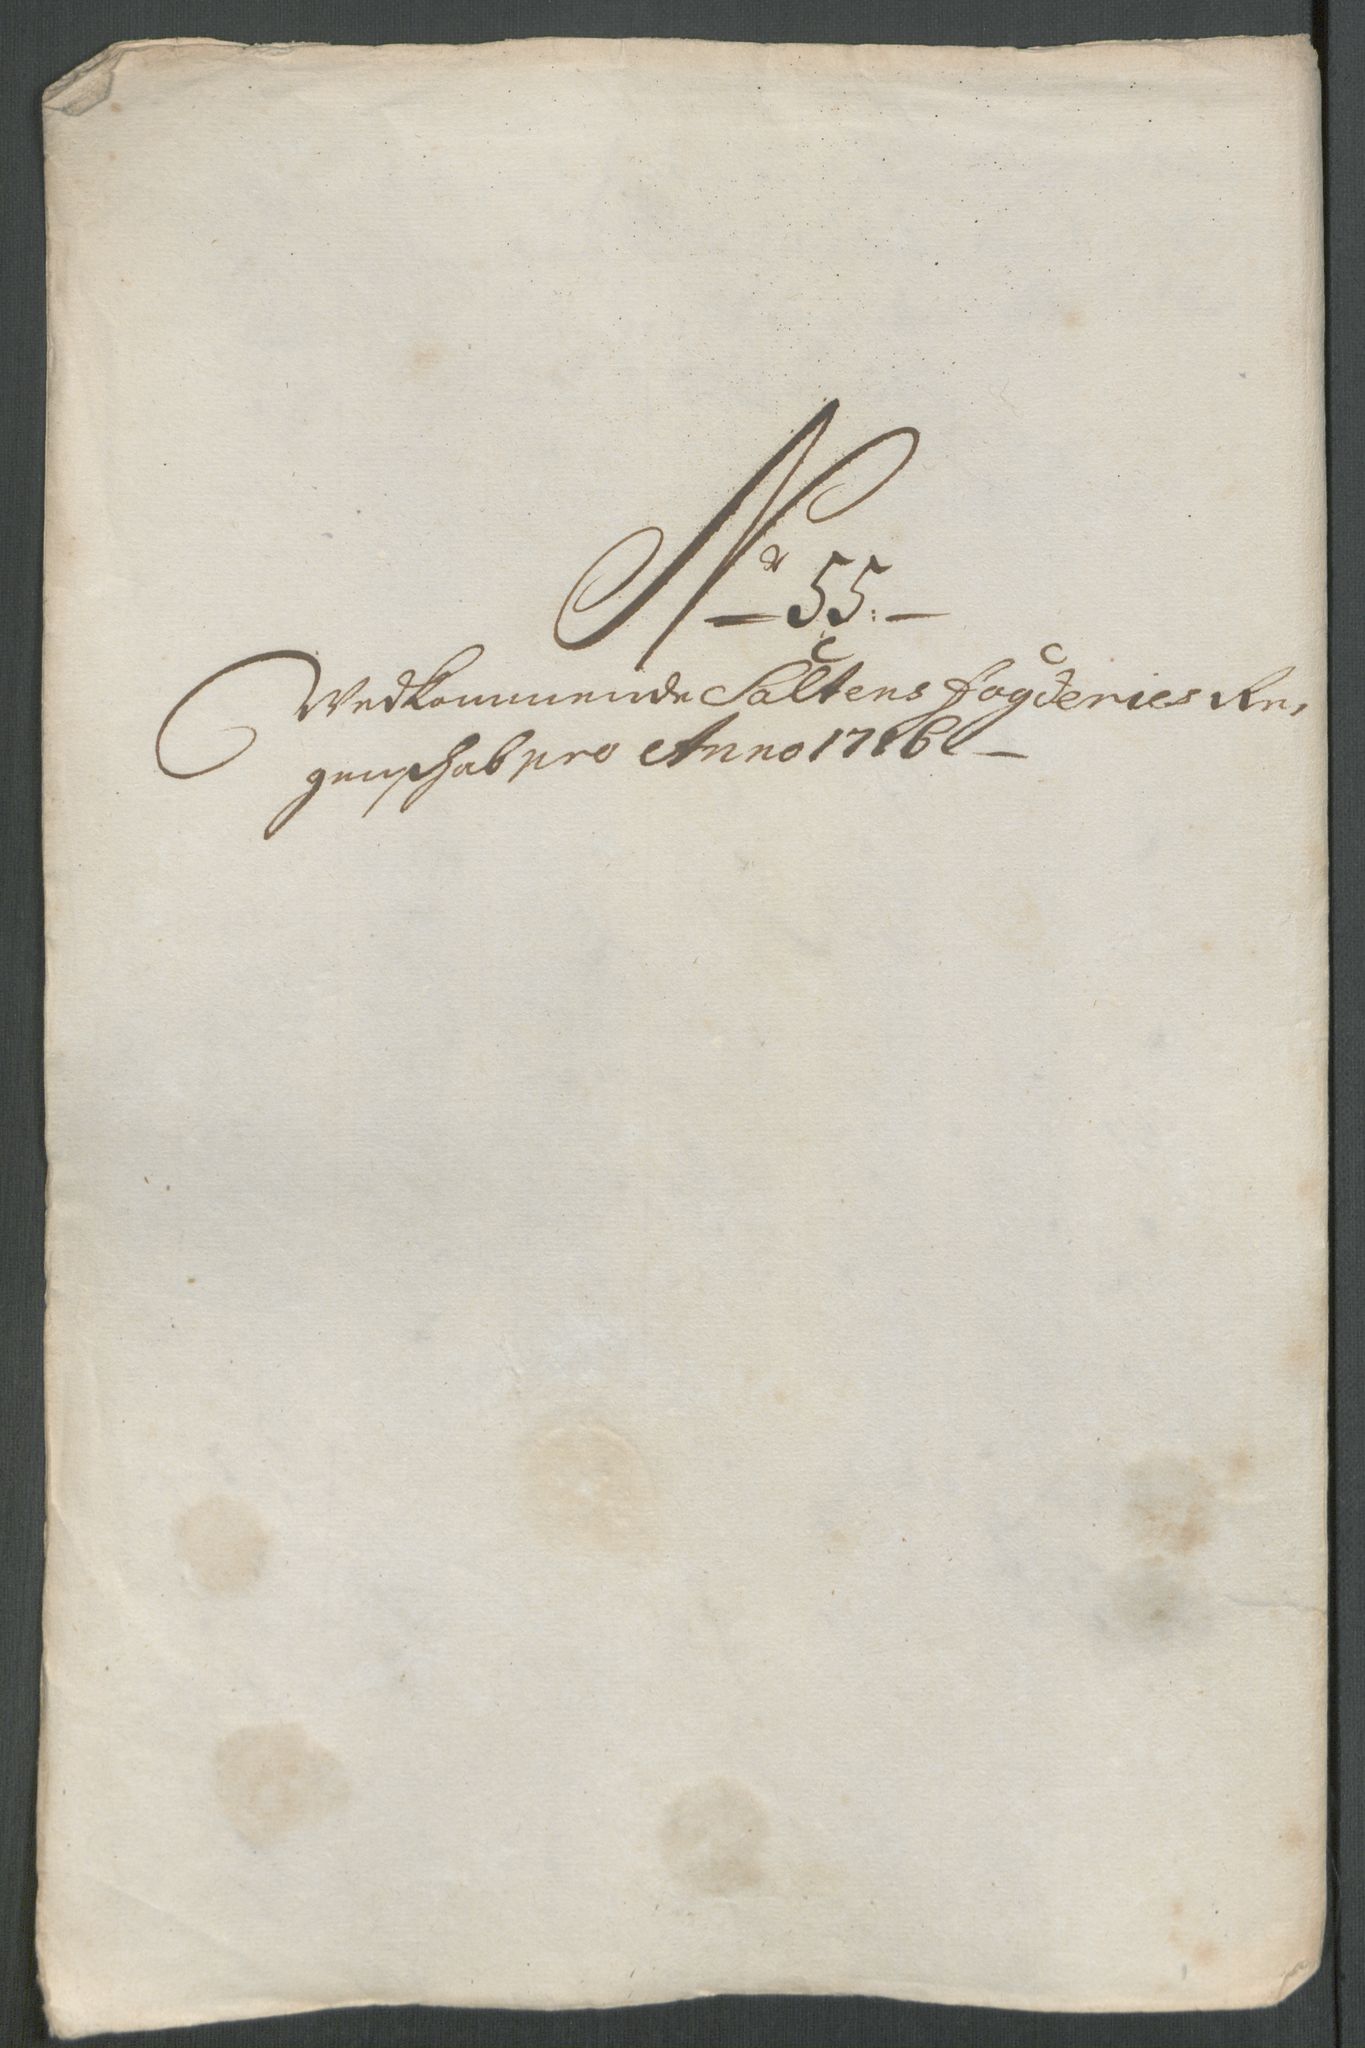 Nr 55.
Vedkommende Saltens fogderies Re,
genschab pro Anno 1716